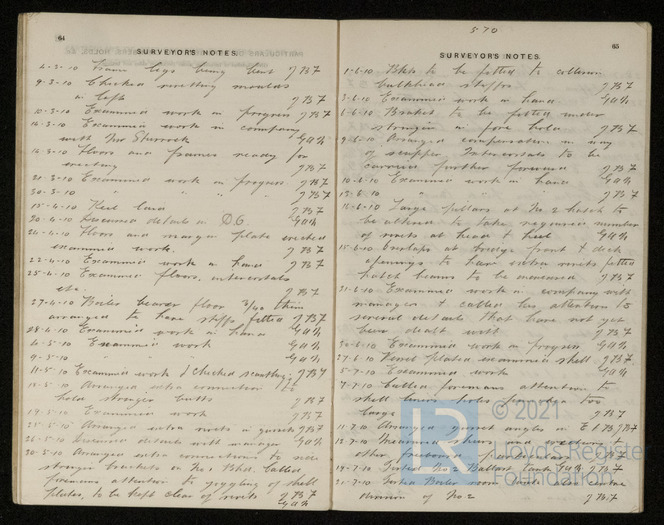 64
SURVEYOR'S NOTES.
4-3-10 Frame legs being bent JBF
9-3-10 Checked moulds
in loft JBF
10-3-10 Examined work in progress JBF
14-3-10 Examined work in company
with Mr
16-3-10 Floors and frames ready for
erecting JBF
21-3-10 Examined work in progress JBF
30-3-10 " " " JBF
15-4-10 Keel laid JBF
20-4-10 Discussed details in D.O.
Floors and margin plate erected
examined work. JBF
22-4-10 Examined work in hand JBF
25-4-10 Examined floors, intercostals
etc. JBF
27-4-10 Boiler bearer floor thin
arranged to have stiffs fitted JBF
28-4-10 Examined work in hand
4-5-10 Examined work
9-5-10 " "
11-5-10 Examined work & checked scantlings JBF
Arranged extra connection to
hold stringer butts JBF
19-5-10 Examined work JBF
25-5-10 Arranged extra rivets in gussets JBF
26-5-10 Discussed details with manager
30-5-10 Arranged extra connections to
stringer brackets on No 1 Bhd. Called
foremans attention to joggling of shell
plates, to be kept clear of rivets JBF
570
65
SURVEYOR'S NOTES
1-6-10 Bhds to be fitted to collision
bulkhead stiffrs. JBF
3-6-10 Examined work in hand
6-6-10 Bracket to be fitted under
stringer in fore hold JBF
9-6-10 Arranged compensation in way
of scupper. Intercostals to be
carried further forward JBF
10-6-10 Examined work in hand
13-6-10 " "
Large pillars at No 2 hatch to
be altered to take required number
of rivets at head & heel
15-6-10 Overlaps at bridge front & deck
openings to have extra rivets fitted
hatch beams to be JBF
21-6-10 Examined work in company with
manager & called his attention to
several details that have not yet
been dealt with JBF
Examined work in progress
27-6-10 Vessel plated examined shell JBF
5-7-10 Examined work
7-7-10 Called foremans attention to
shell rivet holes too
large JBF
11-7-10 Arranged gusset angles in
12-7-10 Measured sheer and
other freeboard particulars
19-7-10 Tested No 2 Ballast tank JBF
21-7-10 Tested Boiler room tank
division of No 2 JBF
© 2021
Lloyd's Register
Foundation
LR